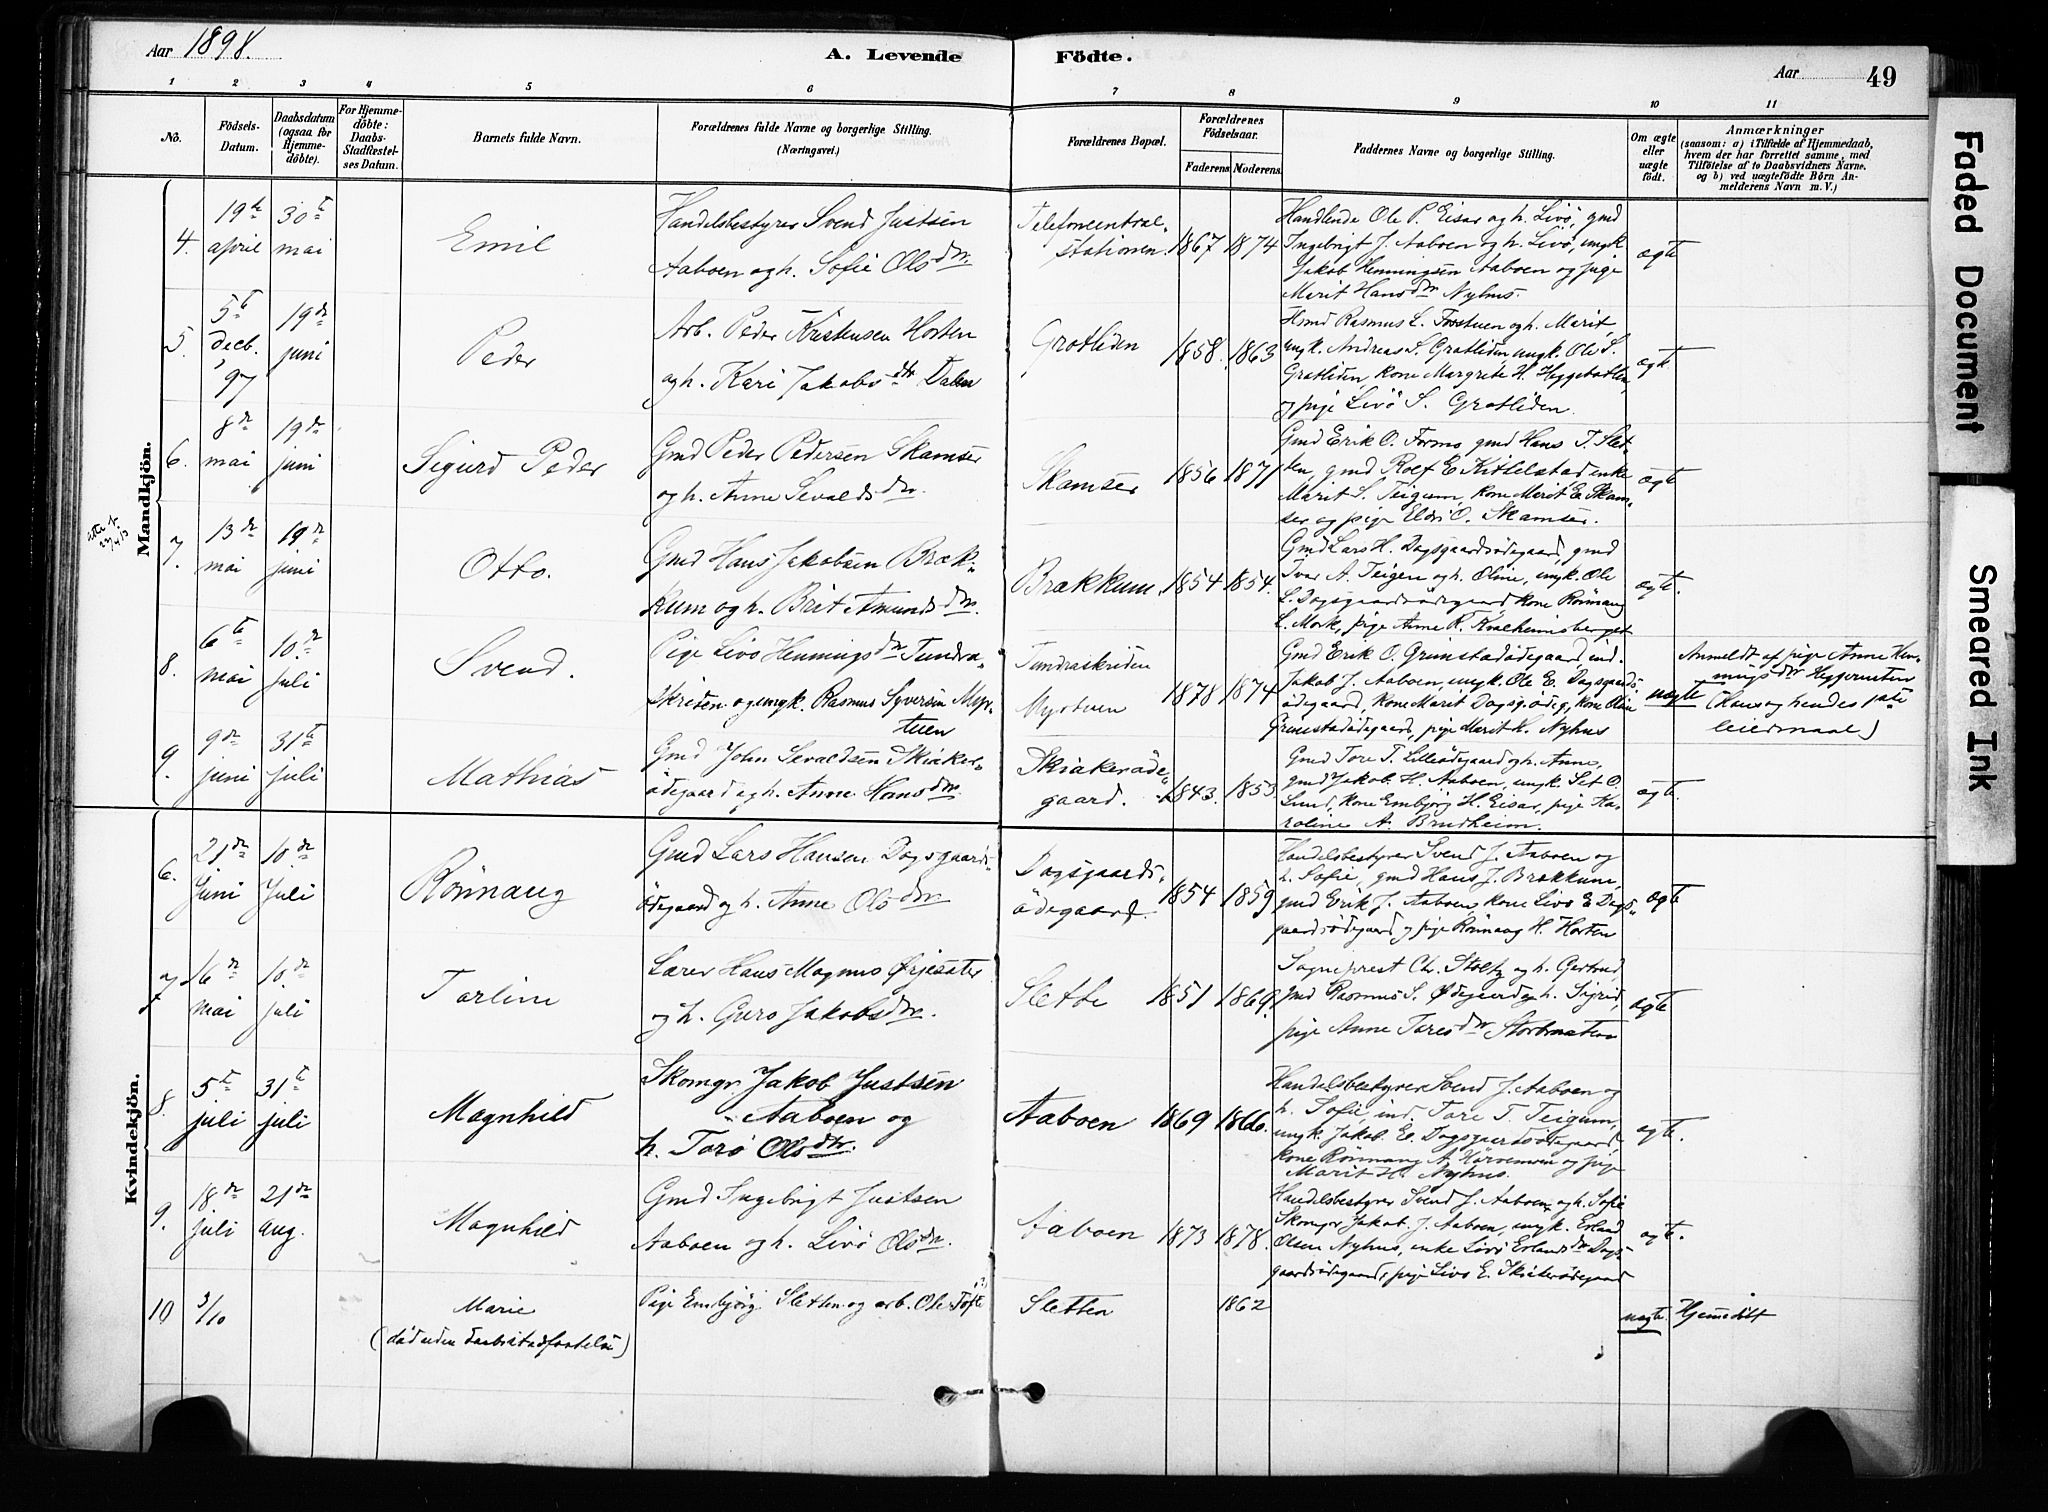 Aar 1898.
A. Levende Födte.
Aar 49
1 2 3 4 5 6 7 8 9 10 11
No.
Födsels-Datum.
Daabsdatum (ogsaa for Hjemmedöbte).
For Hjemmedöbte: Daabs-Stadfæstelses Datum.
Barnets fulde Navn.
Forældrenes fulde Navne og borgerlige Stilling.
(Næringsvei.)
Forældrenes Bopæl.
Forældrenes Födselsaar.
Faderens Moderens.
Faddernes Navne og borgerlige Stilling.
Om ægte eller uægte födt.
Anmærkninger
(saasom: a) i Tilfælde af Hjemmedaab,
hvem der har forrettet samme, med
Tilföielse af to Daabsvidners Navne.
og b) ved uægtefödte Börn An-
melderens Navn m. V.)
Mandkjön.
4. 19de april 30te mai
Emil
Handelsbestyrer Svend Justsen
Aaboen og h. Sofie Olsdtr.
Telefoncentral-
stationen. 1867 1874
Handlende Ole P. Eisar og h. Livö, gmd
Ingebrigt J. Aaboen og h. Livö, ungk.
Jakob Henningsen Aaboen og pige
Marit Hansdtr Nyhus.
ægte
5. 5te decb. 97 19de juni
Peder
Arb. Peder Kristensen Horten
og h. Kari Jakobsdtr Dalen
Grotliden 1858. 1863
Hsmd Rasmus L. Forstuen og h. Marit,
ungk. Andreas S. Grotliden ungk. Ole S.
Grotliden, kone Margrete H. Heggebotten
og pige Livö S. Grotliden.
ægt.
6. 8de mai 19de juni
Sigurd Peder
Gmd Peder Pedersen Skamser
og h. Anne Sevaldsdtr.
Skamser 1856 1871
Gmd Erik O. Formo, gmd Hans T. Slet-
ten, gmd Rolf E. Kittelstad, enke
Marit S. Teigum, kone Marit E. Skam-
ser og pige Eldri O. Skamser.
ægte
7. 13de mai 19de juni
Otto.
Gmd Hans Jakobsen Bræk-
kum og h. Brit Amundsdtr.
Brækkum. 1854 1854.
Gmd Lars H. Dagsgaardsödegaard, gmd
Ivar A. Teigen og h. Oline, ungk. Ole
L. Dagsgaardsödegaard kone Rönnaug
L. Mork, pige Anne R. Kvalheimsberget
ægte.
8. 6te mai 10de juli
Svend.
Pige Livö Henningsdtr Tundra-
skriden og ungk. Rasmus Syversen Myr-
tuen
Tundraskriden
Myrtuen 1878 1874
Gmd Erik O. Grimstadödegaard, ind.
Jakob J. Aaboen, ungk. Ole E. Dagsgaards-
ödegaard, kone Marit Dagsg.ödeg., kone Oline
Grimstadödegaard, pige Marit H. Nyhus
uægte
Anmeldt af pige Anne Hen-
ningsdtr
(Hans og hendes 1ste
leiermaal)
9. 9de juni 31te juli
Mathias
Gmd John Sevaldsen Skiaker-
ödegaard og h. Anne Hansdtr.
Skiakeröde-
gaard. 1843. 1853
Gmd Tore T. Lilleödegaard og h. Anne,
gmd Jakob H. Aaboen, ungk. Set O.
Lund, kone Embjörg H. Eisar, pige Ka-
roline A. Brudheim.
ægte.
Kvindekjön.
6. 21de Juni 10de Juli
Rönnaug
Gmd Lars Hansen Dagsgaards-
ödegaard og h. Anne Olsdtr
Dagsgaards-
ödegaard. 1854 1859
Handelsbestyrer Svend J. Aaboen og
h. Sofie, gmd Hans J. Brækkum,
gmd Erik J. Aaboen, kone Livö E. Dags-
gaardsödegaard og pige Rönnaug H. Horten
ægte
7. 16de mai 10de juli
Torline
Lærer Hans Magnus Örjesæter
og h. Guro Jakobsdtr.
Slette 1851 1869.
Sogneprest Chr. Stoltz og h. Gertrud
gmd Rasmus S. Ödegaard og h. Sigrid,
pige Anne Toresdtr
ægte
8. 5te juli 31te juli
Magnhild
Skomgr. Jakob Justsen
Aaboen og
h. Torö Olsdtr.
Aaboen 1869 1866.
Handelsbestyrer Svend J. Aaboen og
h. Sofie, ind. Tore T. Teigum,
ungk. Jakob E. Dagsgaardsödegaard,
kone Rönnaug A. og pige
Marit H. Nyhus.
ægte.
9. 18de juli 21de aug.
Magnhild
Gmd Ingebrigt Justsen
Aaboen og h. Livö Olsdtr.
Aaboen 1873 1878.
Handelsbestyrer Svend J. Aaboen og h. Sofie
Skomgr Jakob J. Aaboen, ungk. Erland
Olsen Nyhus, enke Livö Erlandsdtr Dags-
gaardsödegaard, pige Livö E. Skiakerödegaard
ægt.
10 3/10
Marie
(död uden daabsstadfæstelse)
Pige Embjörg Sletten og arb. Ole Tofte (?)
Sletten 1862
uægte. Hjemmedöbt
Faded Document
Smeared Ink